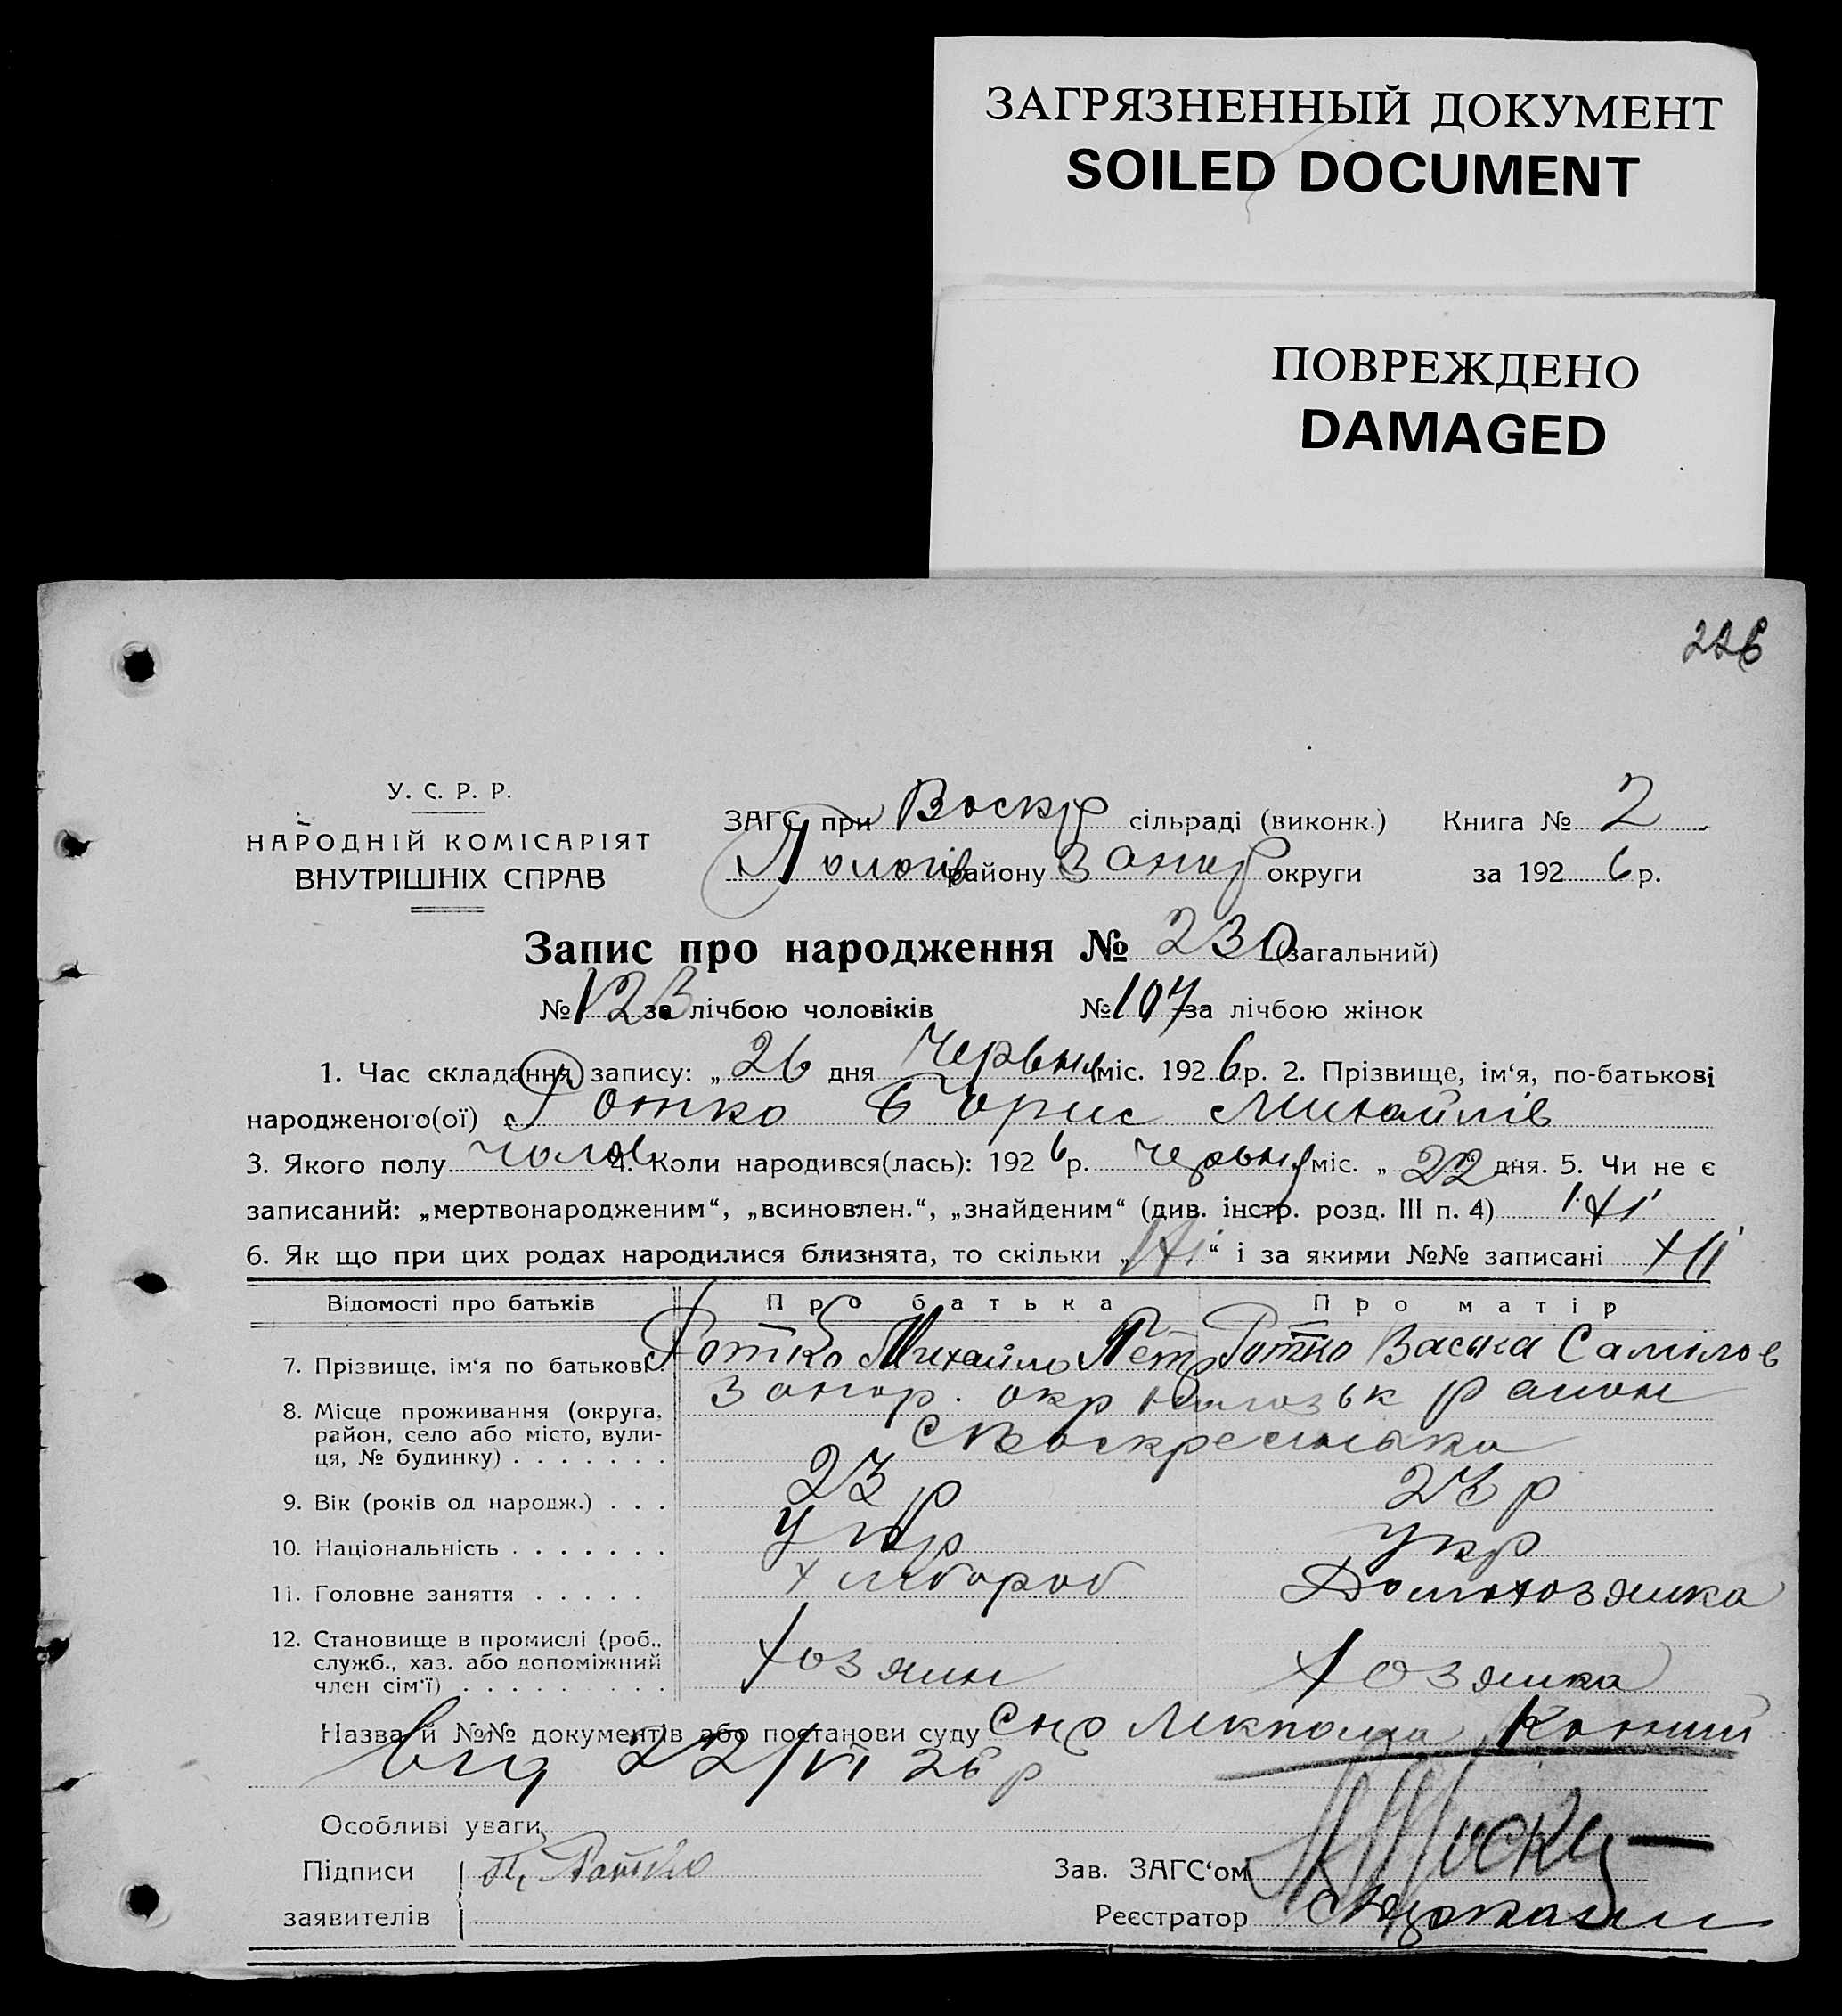 ЗАГРЯЗНЕННЫЙ ДОКУМЕНТ
SOILED DOCUMENT
ПОВРЕЖДЕНО
DAMAGED
226
У. С. Р. Р.
НАРОДНІЙ КОМІСАРІЯТ
ВНУТРІШНІХ СПРАВ
ЗАГС при Воскр сільраді (виконк.) Книга № 2
Пологів району Запор округи за 1926 р.
Запис про народження № 230 (загальний)
№ 123 за лічбою чоловіків № 107 за лічбою жінок
1. Час складання запису: „26 дня Червня міс. 1926 р. 2. Прізвище, ім‘я, по-батькові
народженого(ої) Ротко Борис Михайлів
3. Якого полу чолов 4. Коли народився(лась): 1926 р. червня міс. „ 22 дня. 5. Чи не є
записаний: „мертвонародженим“, „всиновлен.“, „знайденим“ (див. інстр. розд. III п. 4) Ні
6. Як що при цих родах народилися близнята, то скільки „Ні“ і за якими №№ записані Ні
Відомості про батьків Про батька Про матір
7. Прізвище, ім‘я по батькові. Ротко Михайло Петр Ротко Васика Самілов
8. Місце проживання (округа, район, село або місто, вулиця, № будинку) Запор. окр район
с Воскресенька
9. Вік (років од народж.) 23 р 23 р
10. Національність укр укр
11. Головне заняття хлібороб Домохозяика
12. Становище в промислі (роб., служб., хаз. або допоміжний член сім‘ї) хозяин хозяика
Назва й №№ документів або постанови суду
від 22/VI 26 р
Особливі уваги
Підписи П. Ротко Зав. ЗАГС‘ом
заявителів Реєстратор